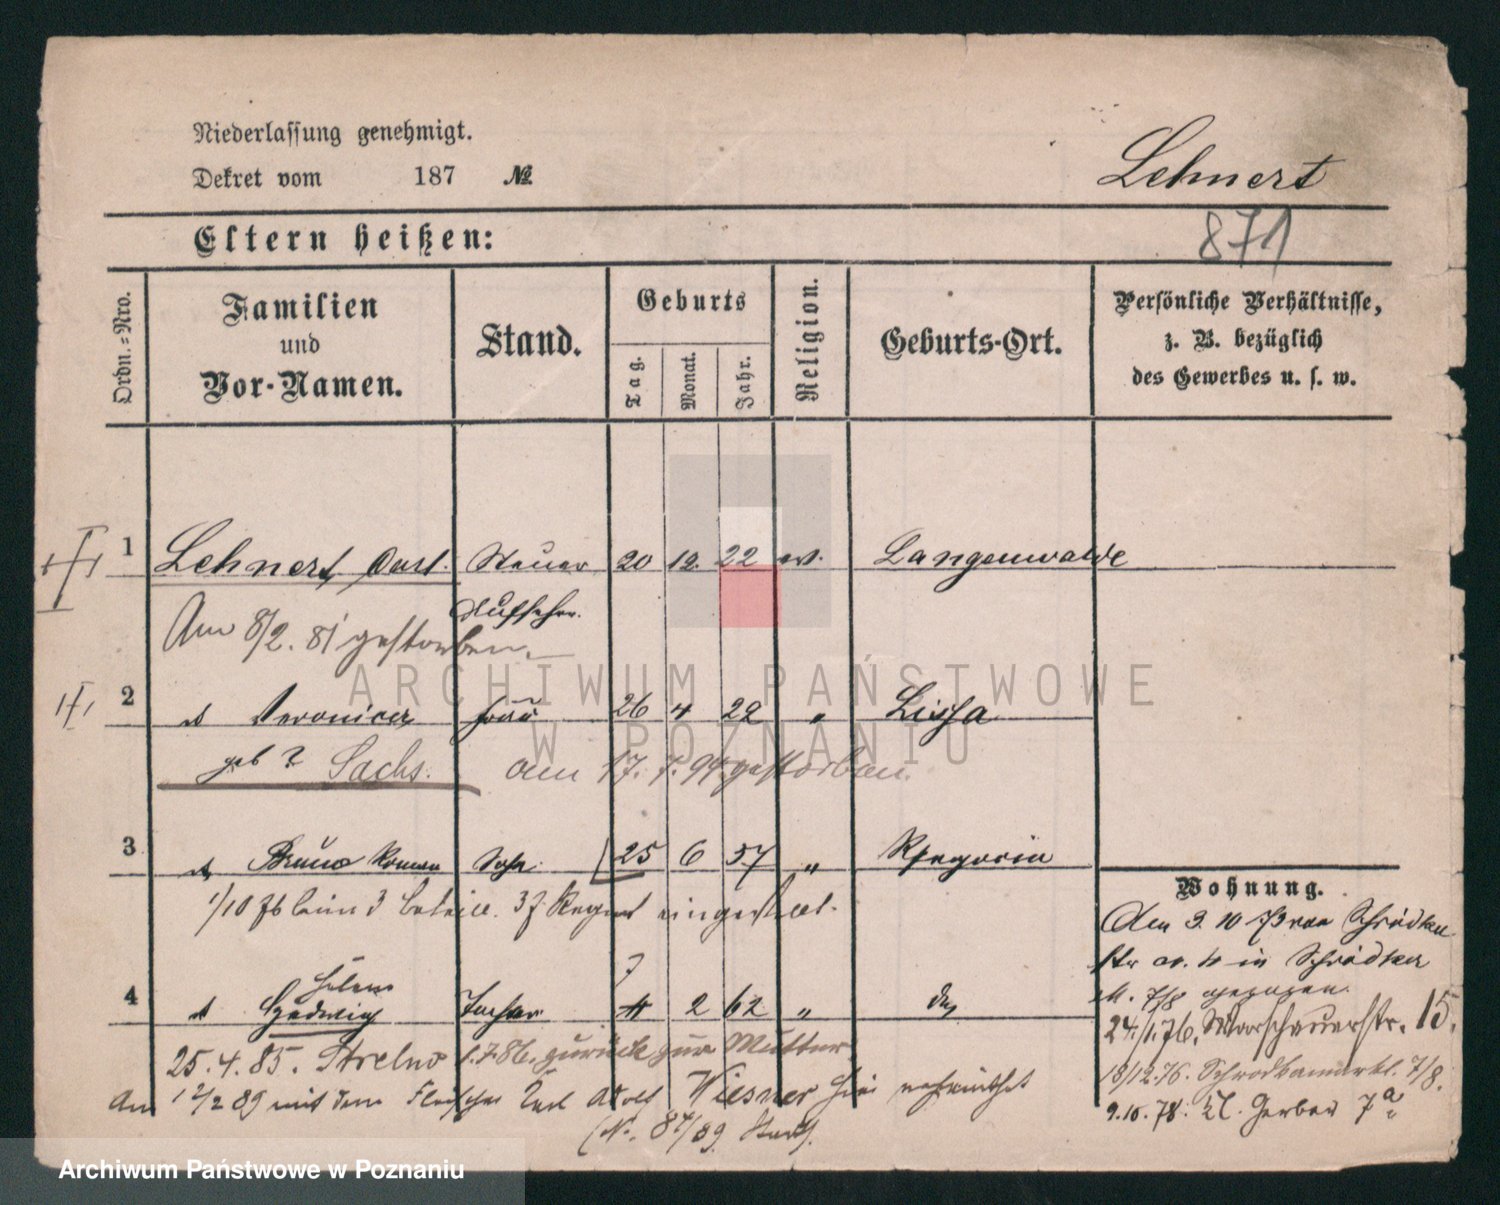 Niederlassung genehmigt.
Dekret vom 187 №
Lehnert
Eltern heißen:
871
Ordn.=Nro.
Familien
und
Vor-Namen.
Stand.
Geburts
Tag.
Monat.
Jahr.
Religion.
Geburts-Ort.
Persönliche Verhältnisse,
z. B. bezüglich
des Gewerbes u. s. w.
1 Lehnert, Carl. Steuer 20 12. 22 ev. Langenwalde
Aufseher.
Am 8/2. 81 gestorben.
2 Veronica Frau 26 4 22 " Lissa
geb ? Sachs. am 17. 94 gestorben.
3 Bruno Roman Sohn 25 6 57 "
1/10 76 beim 3 37 Regmt eingestellt.
Helene
7
4 Hedwig Tochter 4 2 62 "
25.4.85. Strelno 1.7.86. zurück zur Mutter
Am 12/2 89 mit dem Fleischer Carl Adolf Wiesner hier verheirathet
(No. 87/89
Wohnung.
Am 3. 10 73 von Schrodka
in Schrodker
M. 7/8 gezogen.
24./1.76. Warschauerstr. 15.
18/12.76. Schrodkamarkt. 7/8.
9.10.78. Kl. Gerber 7a
ARCHIWUM PAŃSTWOWE
W POZNANIU
Archiwum Państwowe w Poznaniu